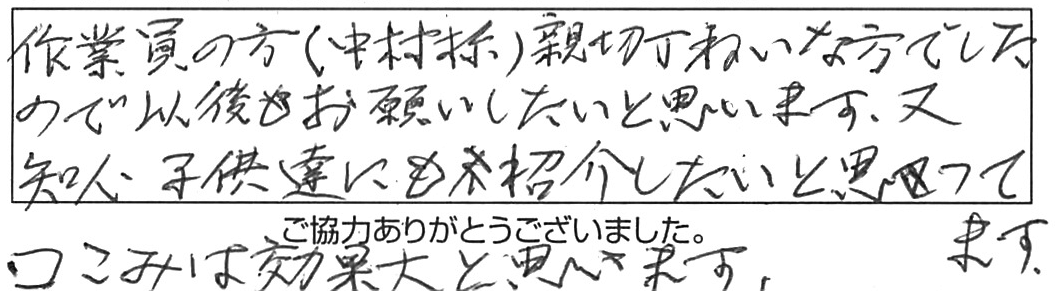 作業員の方(中村様)親切丁ねいな方でした
ので以後もお願いしたいと思います、又
知人、子供達にも紹介したいと思って
ます。
ご協力ありがとうございました。
口こみは効果大と思います。